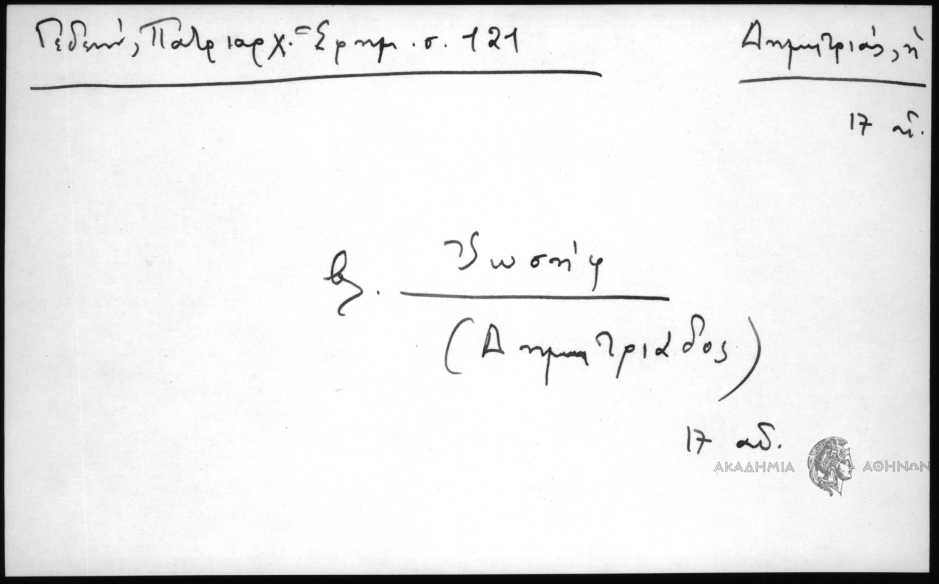 Γεδεών, Πατριαρχ. Ἐφημ. σ. 121
Δημητριάς, ἡ
17 αἰ.
βλ. Ἰωσήφ
(Δημητριάδος)
17 αἰ.
ΑΚΑΔΗΜΙΑ ΑΘΗΝΩΝ